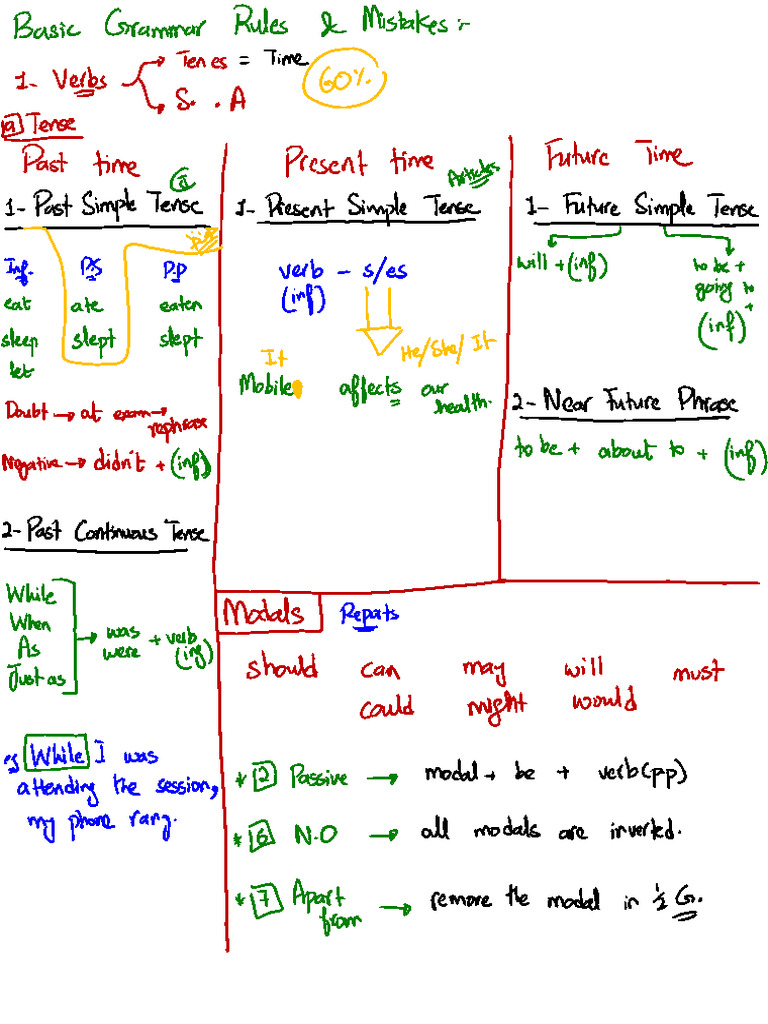 Basic Grammar Rules & Mistakes:-
1- Verbs → Tenes = Time
→ S. . A
60%
a Tense
Past time
1- Past Simple Tense
Inf. P.S P.P
eat ate eaten
sleep slept slept
let
Doubt → at exam → rephrase
Negative → didn't + (inf)
2- Past Continuous Tense
While
When
As
Just as
→ was
were + verb
(ing)
eg While I was
attending the session,
my phone rang.
Present time
Articles
1- Present Simple Tense
verb - s/es
(inf)
He/She/It
It
Mobile affects our
health.
Future Time
1- Future Simple Tense
will + (inf)
to be +
going to
+
(inf)
2- Near Future Phrase
to be + about to + (inf)
Modals Reports
should can may will must
could might would
* 2 Passive → modal + be + verb(pp)
* 6 N.O → all modals are inverted.
* 7 Apart
from → remove the modal in ½ G.